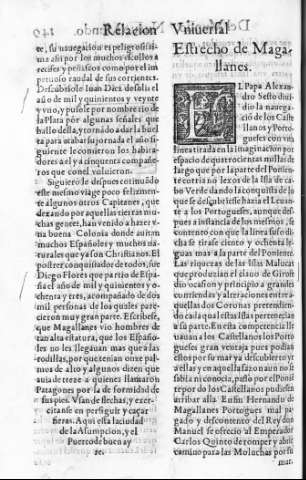 Relacion Vniuersal
te, su nauegacion es peligrosissi-
ma assi por los muchos escollos o
recifes y peñascos como por el im
petuoso raudal de sus corrientes.
Descubriole Iuan Diaz de solis el
año de mil y quinientos y veynte
y vno, y pusole por nombre rio de
la Plata por algunas señales que
hallo della, y tornado a dar la buel
ta para acabar su jornada el año si
guiente le comieron los habita-
dores a el y a cinquenta compañe-
ros que con el voluieron.
Siguierole despues con nudo
este mesmo viage poco felizmen-
te algunos otros Capitanes, que
dexando por aquellas tierras mu-
chas gente, han venido a hazer v-
na buena Colonia donde autan
muchos Españoles y muchos na-
turales que ya son Christianos. El
postrer conquistador de todos, fue
Diego Flores que partio de Espa-
ña el año de mil y quinientos y o-
chenta y tres, acompañado de dos
mil personas de los quales pere-
cieron muy gran parte. Escribese,
que Magallanes vio hombres de
tan alta estatura, que los Españo-
les no les llegauan mas que a las
rodillas, por que tenian onze pal-
mos de alto y algunos dizen que
auia de treze a quienes llamaron
Patagones por la de formidad de
sus pies. Vsan de flechas, y exer-
citanse en perseguir y caçar
fieras. Aqui esta la ciudad
de la Assumpcion, y el
Puerto de buen ay
re.
Estrecho de Maga-
llanes.
EL Papa Alexan-
dro Sesto diui-
dio la nauega-
cion de los Caste
llanos y Por-
tugueses con vna
linea tirada en la imaginacion por
espacio de quatrocientas millas de
largo que por la parte del Ponien-
te corria no lexos de la Isla de ca-
bo Verde dando la conquista de lo
que se descubriesse hazia el Leuan-
te a los Portugueses, aunque des-
pues a instancia de los mesmos, se
contento con que la linea suso di-
cha se tirase ciento y ochenta le-
guas mas a la parte del Poniente.
Las riquezas de las Islas Malucas
que produzian el clauo de Girofe
dio ocasion y principio a grandes
contiendas y alteraciones entre a-
quellas dos Coronas pretendien-
do cada qual estas Islas pertenezcan
a su parte. En esta competencia lle
uauan a los Castellanos los Portu
gueses gran ventaja pues posseian
estos por su mar ya descubierto y
a ellas y en aquella sazon aun no se
sabia ni conocia, passo por el Poni-
ente por do los Castellanos pudiesen
arribar alla. En fin Hernando de
Magallanes Portogues mal pa-
gado y descontento del Rey don
Manuel se ofrecio al Emperador
Carlos Quinto de romper y abrir
camino para las Moluchas por su
mar.